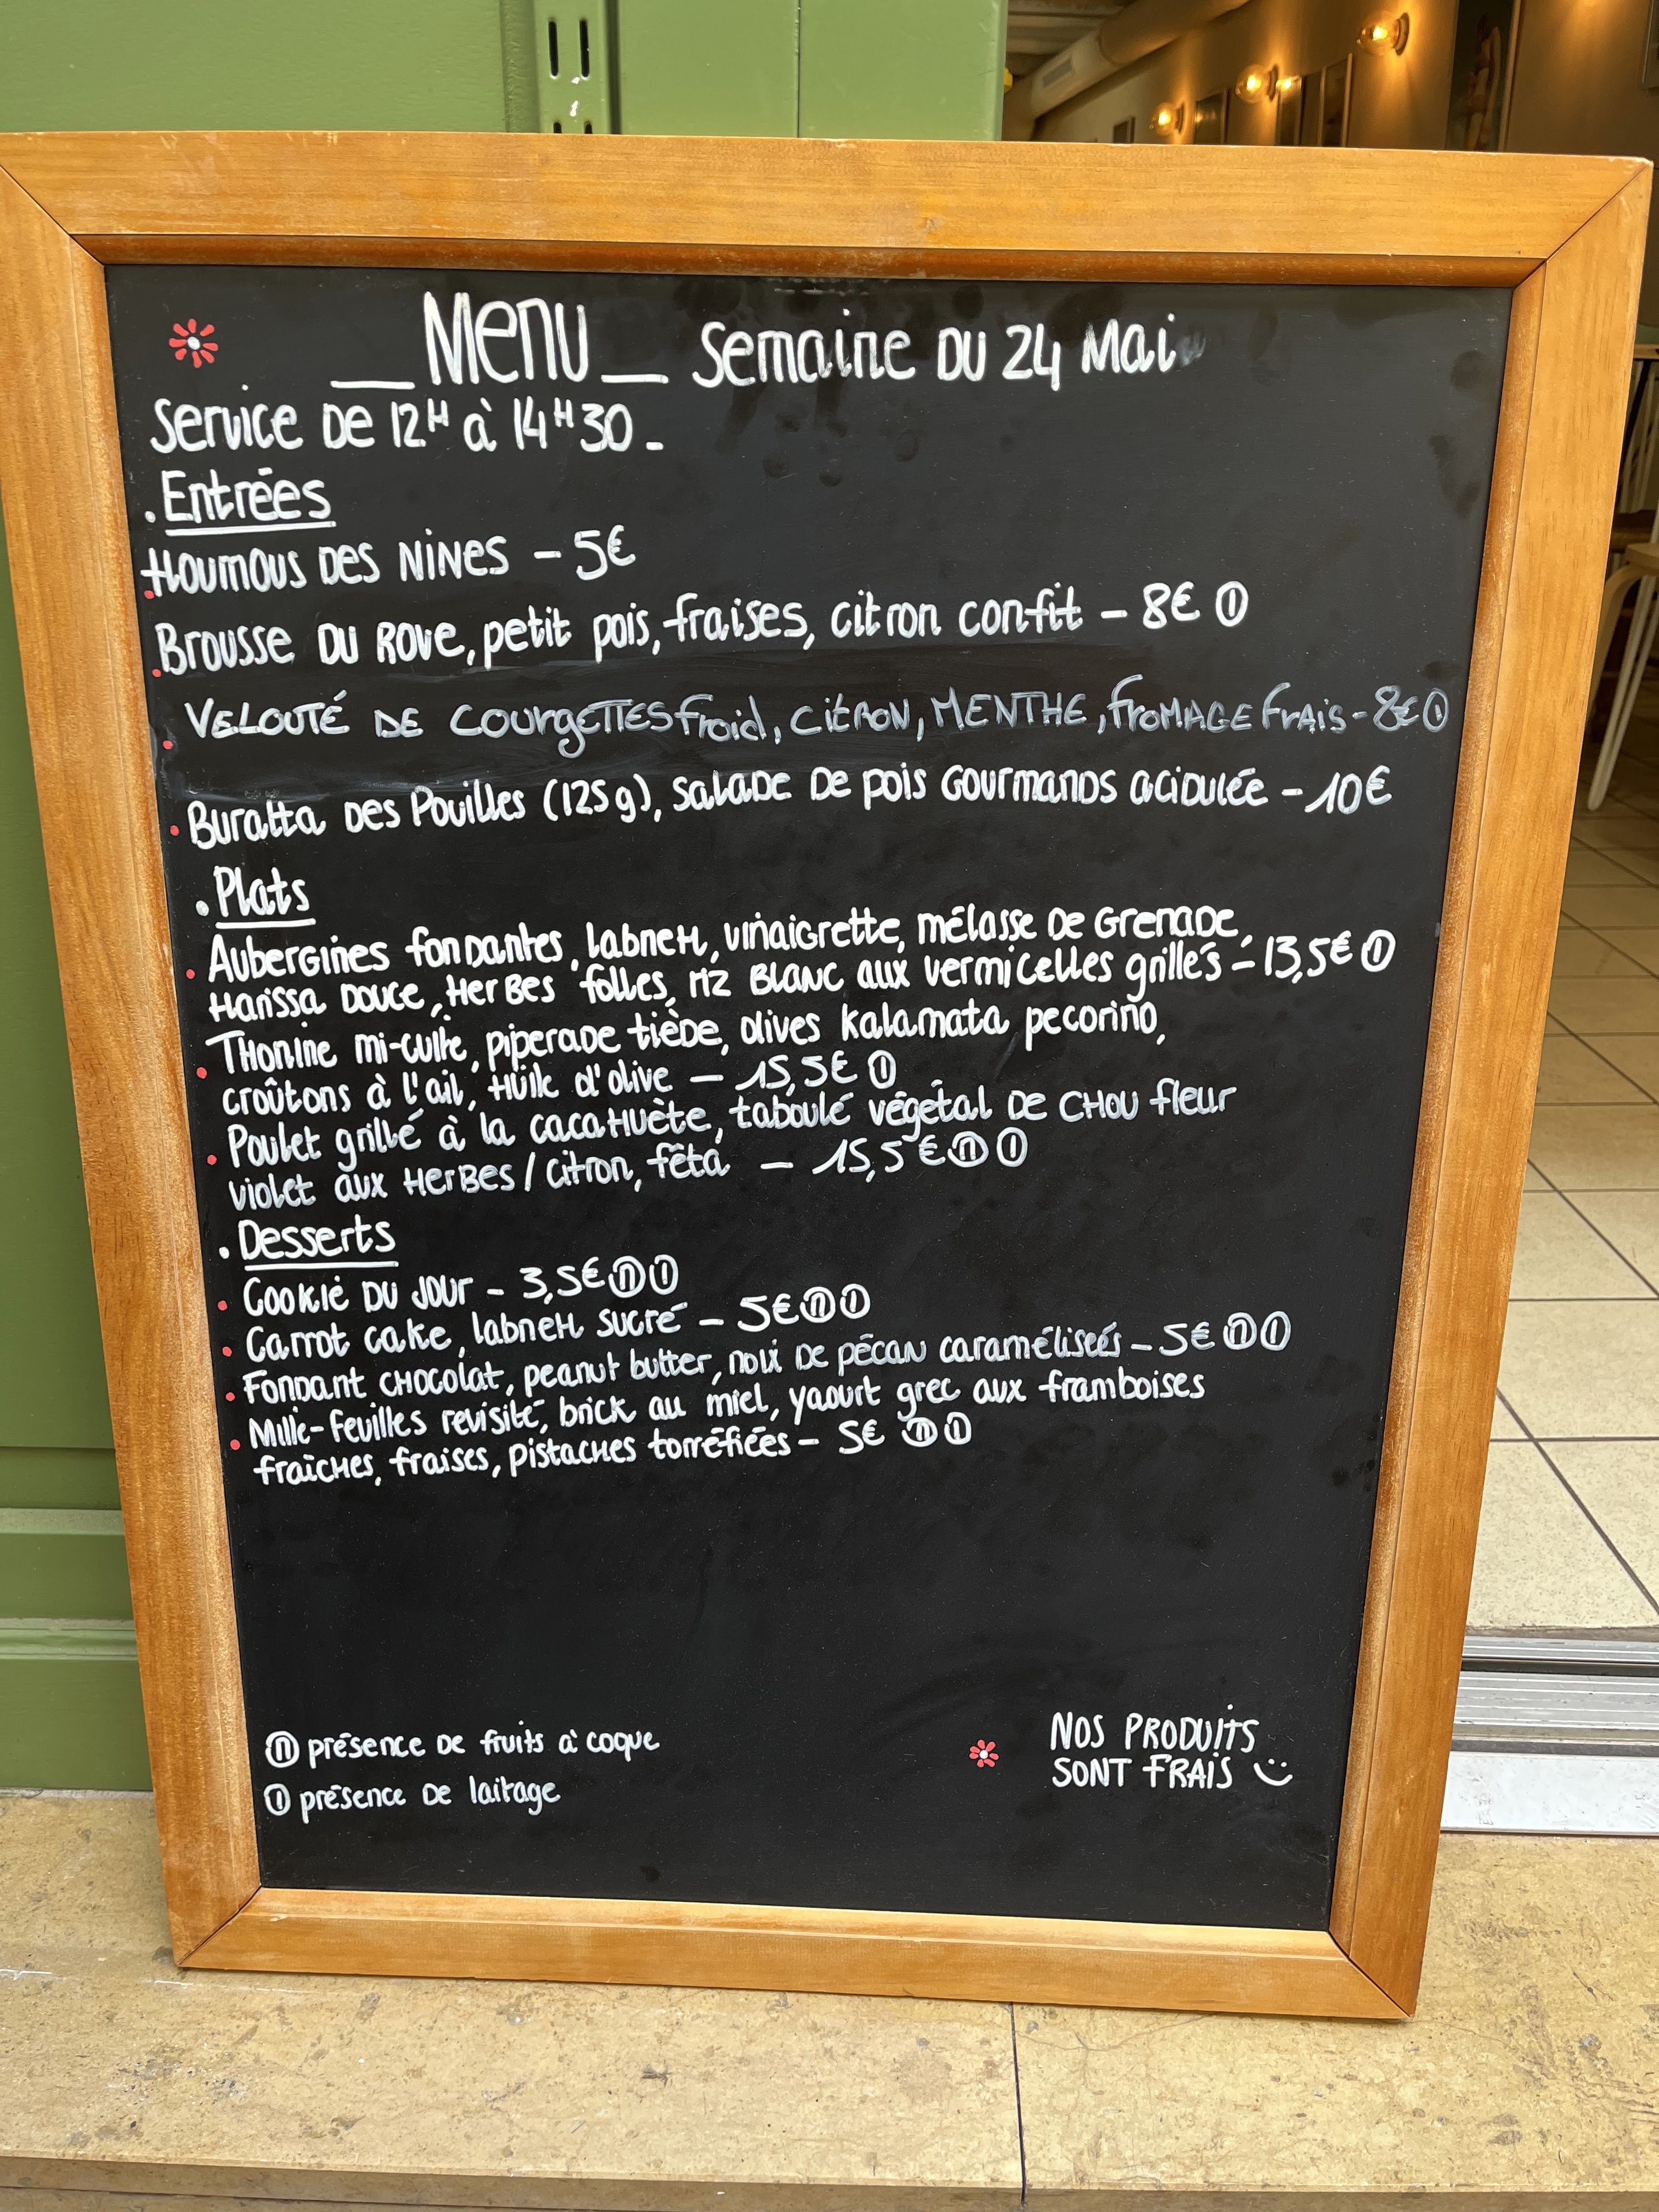 Menu Semaine DU 24 Mai
Service De 12H à 14H30 -
. Entrées
Houmous Des Nines - 5€
Brousse Du Rove, petit pois, fraises, citron confit - 8€ ⓛ
VELOUTÉ DE COURGETTES froid, CITRON, MENTHE, fROMAGE fRAIS - 8€ ⓛ
Buratta Des Pouilles (125g), Salade De pois Gourmands acidulée - 10€
. Plats
Aubergines fondantes, labneh, vinaigrette, mélasse De Grenade,
Harissa Douce, Herbes folles, riz Blanc aux vermicelles grillés - 13,5€ ⓛ
Thonine mi-cuite, piperade tiède, olives kalamata pecorino,
croûtons à l'ail, Huile d'olive - 15,5€ ⓛ
Poulet grillé à la cacahuète, taboulé végétal De chou fleur
violet aux Herbes / citron, fêta - 15,5€ ⓝ ⓛ
. Desserts
Cookie Du Jour - 3,5€ ⓝ ⓛ
Carrot cake, labneh sucré - 5€ ⓝ ⓛ
Fondant chocolat, peanut butter, noix De pécan caramélisées - 5€ ⓝ ⓛ
Mille-feuilles revisité, brick au miel, yaourt grec aux framboises
fraîches, fraises, pistaches torréfiées - 5€ ⓝ ⓛ
ⓝ présence de fruits à coque
ⓛ présence De laitage
NOS PRODUITS
SONT FRAIS